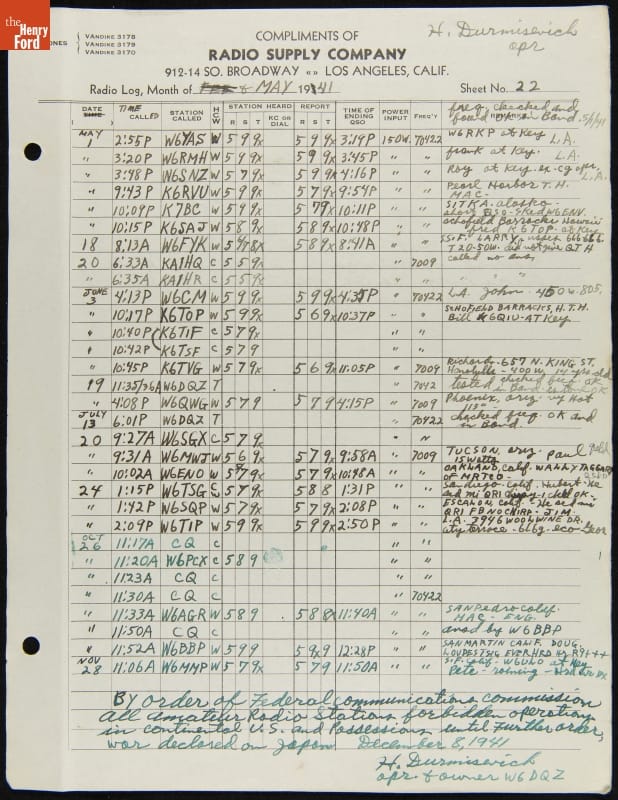 the Henry Ford
COMPLIMENTS OF
H. Durmisevich
opr
PHONES
VANDIKE 3178
VANDIKE 3179
VANDIKE 3170
RADIO SUPPLY COMPANY
912-14 SO. BROADWAY LOS ANGELES, CALIF.
Radio Log, Month of FEB & MAY 1941 Sheet No. 22
DATE TIME CALLED STATION CALLED STATION HEARD R S T KC OR DIAL REPORT R S T TIME OF ENDING QSO POWER INPUT FREQ'Y freq. checked and found OK in Band. 5/1/41
MAY
1 2:55P W6YAS W 599x 599x 3:19P 150W. 7042 W6RKP at Key L.A.
" 3:20P W6RMH W 599x 599x 3:45P " " frank at Key. L.A.
" 3:48P W6SNZ W 579x 599x 4:16P " " Roy at Key. ex-cg opr. L.A.
" 9:43P K6RVU W 599x 579x 9:54P " " Pearl Harbor T.H. MAC.
" 10:09P K7BC W 599x 579x 10:11P " " SITKA. alaska-
" 10:15P K6SAJ W 589x 589x 10:48P " " schofield Barracks Hawaii fred K6TOP. at Key
18 8:13A W6FYK W 598x 589x 8:41A " " S.F. LARRY.
20 6:33A KA1HQ C 559x " 7009 called no ans,
" 6:35A KA1HR C 559x " " "
JUNE
3 4:13P W6CM W 599x 599x 4:35P " 7042 L.A. John. 450W. 805.
" 10:17P K6TOP W 599x 569x 10:37P " SCHOFIELD BARRACKS, H.T.H. Bill K6QIU-AT Key
" 10:40P K6TIF C 579x " "
" 10:42P K6TSF C 579 " "
" 10:45P K6TVG W 579x 569x 11:05P " 7009 Richard-657 N. KING ST. Honolulu-400W. 14 yrs. old
19 W6DQZ T " 7042 tested checked freq. OK
" 4:08P W6QWG W 579 579 4:15P " 7009 Phoenix, ariz. vy Hot 118°
JULY
13 6:01P W6DQZ T " 7042 checked freq. OK and in Band.
20 9:27A W6SGX C 579x " "
" 9:31A W6MWJ W 569x 579x 9:58A " 7009 TUCSON, ariz. Paul 15watts
" 10:02A W6ENO W 579x 579x 10:48A " " OAKLAND, calif. WALLY TAGGART OF MRTCO.
24 1:15P W6TSG W 579x 588 1:31P " " San diego. calif. Hubert.
" 1:42P W6SQP W 579x 579x 2:08P " " ESCALON, calif. He and mi QRI FB NO CHIRP. JIM.
" 2:09P W6TIP W 599x 599x 2:50P " " L.A. 3946 WOOLWINE DR. City terrace
OCT
26 11:17A CQ C " "
" 11:20A W6PCX C 589 " "
" 11:23A CQ C " "
" 11:30A CQ C " 7042
" 11:33A W6AGR W 589 588x 11:40A " " SAN Pedro calif. MAC. ENG.
" 11:50A CQ C " " ansd by W6BBP
" 11:52A W6BBP W 599 599x 12:28P " " SAN MARTIN CALIF. DOUG. LOUDEST SIG EVER HRD HR R9+++
NOV
28 11:06A W6MMP W 579x 579 11:50A " " S.F. calif. W6ULO at Key Pete
By order of Federal communications commission
all amateur Radio Stations forbidden operation
in continental U.S. and Possessions until Further order,
war declared on Japan December 8, 1941
H. Durmisevich
opr & owner W6DQZ